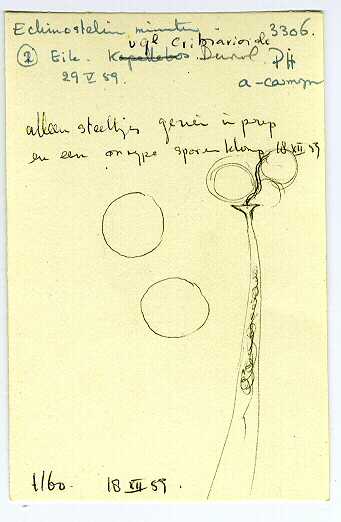 Echinostelium minutum 3306.
vgl cribrarioides
② Eik. Kapellebos Duivol. PH
29 V 59. a-comyn
alleen steeltjes gezien in prep
en een onrype sporenklomp 18 XII 59
1/60. 18 XII 59.